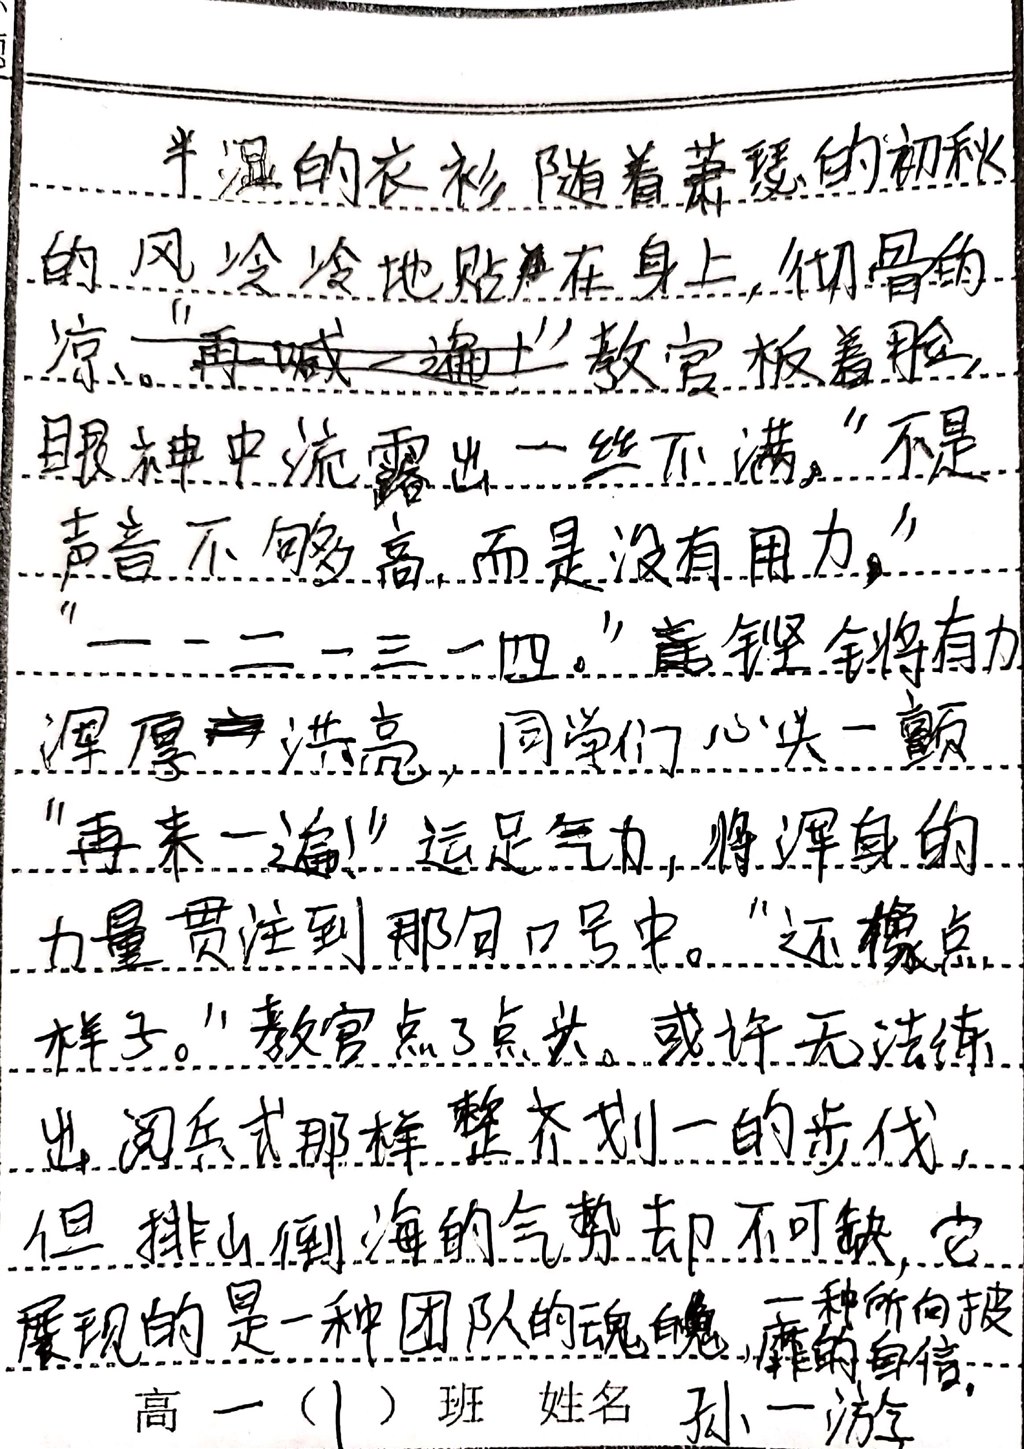 半湿的衣衫随着萧瑟的初秋
的风冷冷地贴在身上,彻骨的
凉。"再喊一遍!"教官板着脸,
眼神中流露出一丝不满。"不是
声音不够高,而是没有用力。"
"一-二-三-四。"铿铿将有力
浑厚洪亮,同学们心头一颤
"再来一遍!"运足气力,将浑身的
力量贯注到那句口号中。"还像点
样子。"教官点了点头。或许无法练
出阅兵式那样整齐划一的步伐,
但排山倒海的气势却不可缺,它
展现的是一种团队的魂魄,一种所向披
靡的自信。
高一(1)班 姓名 孙一游